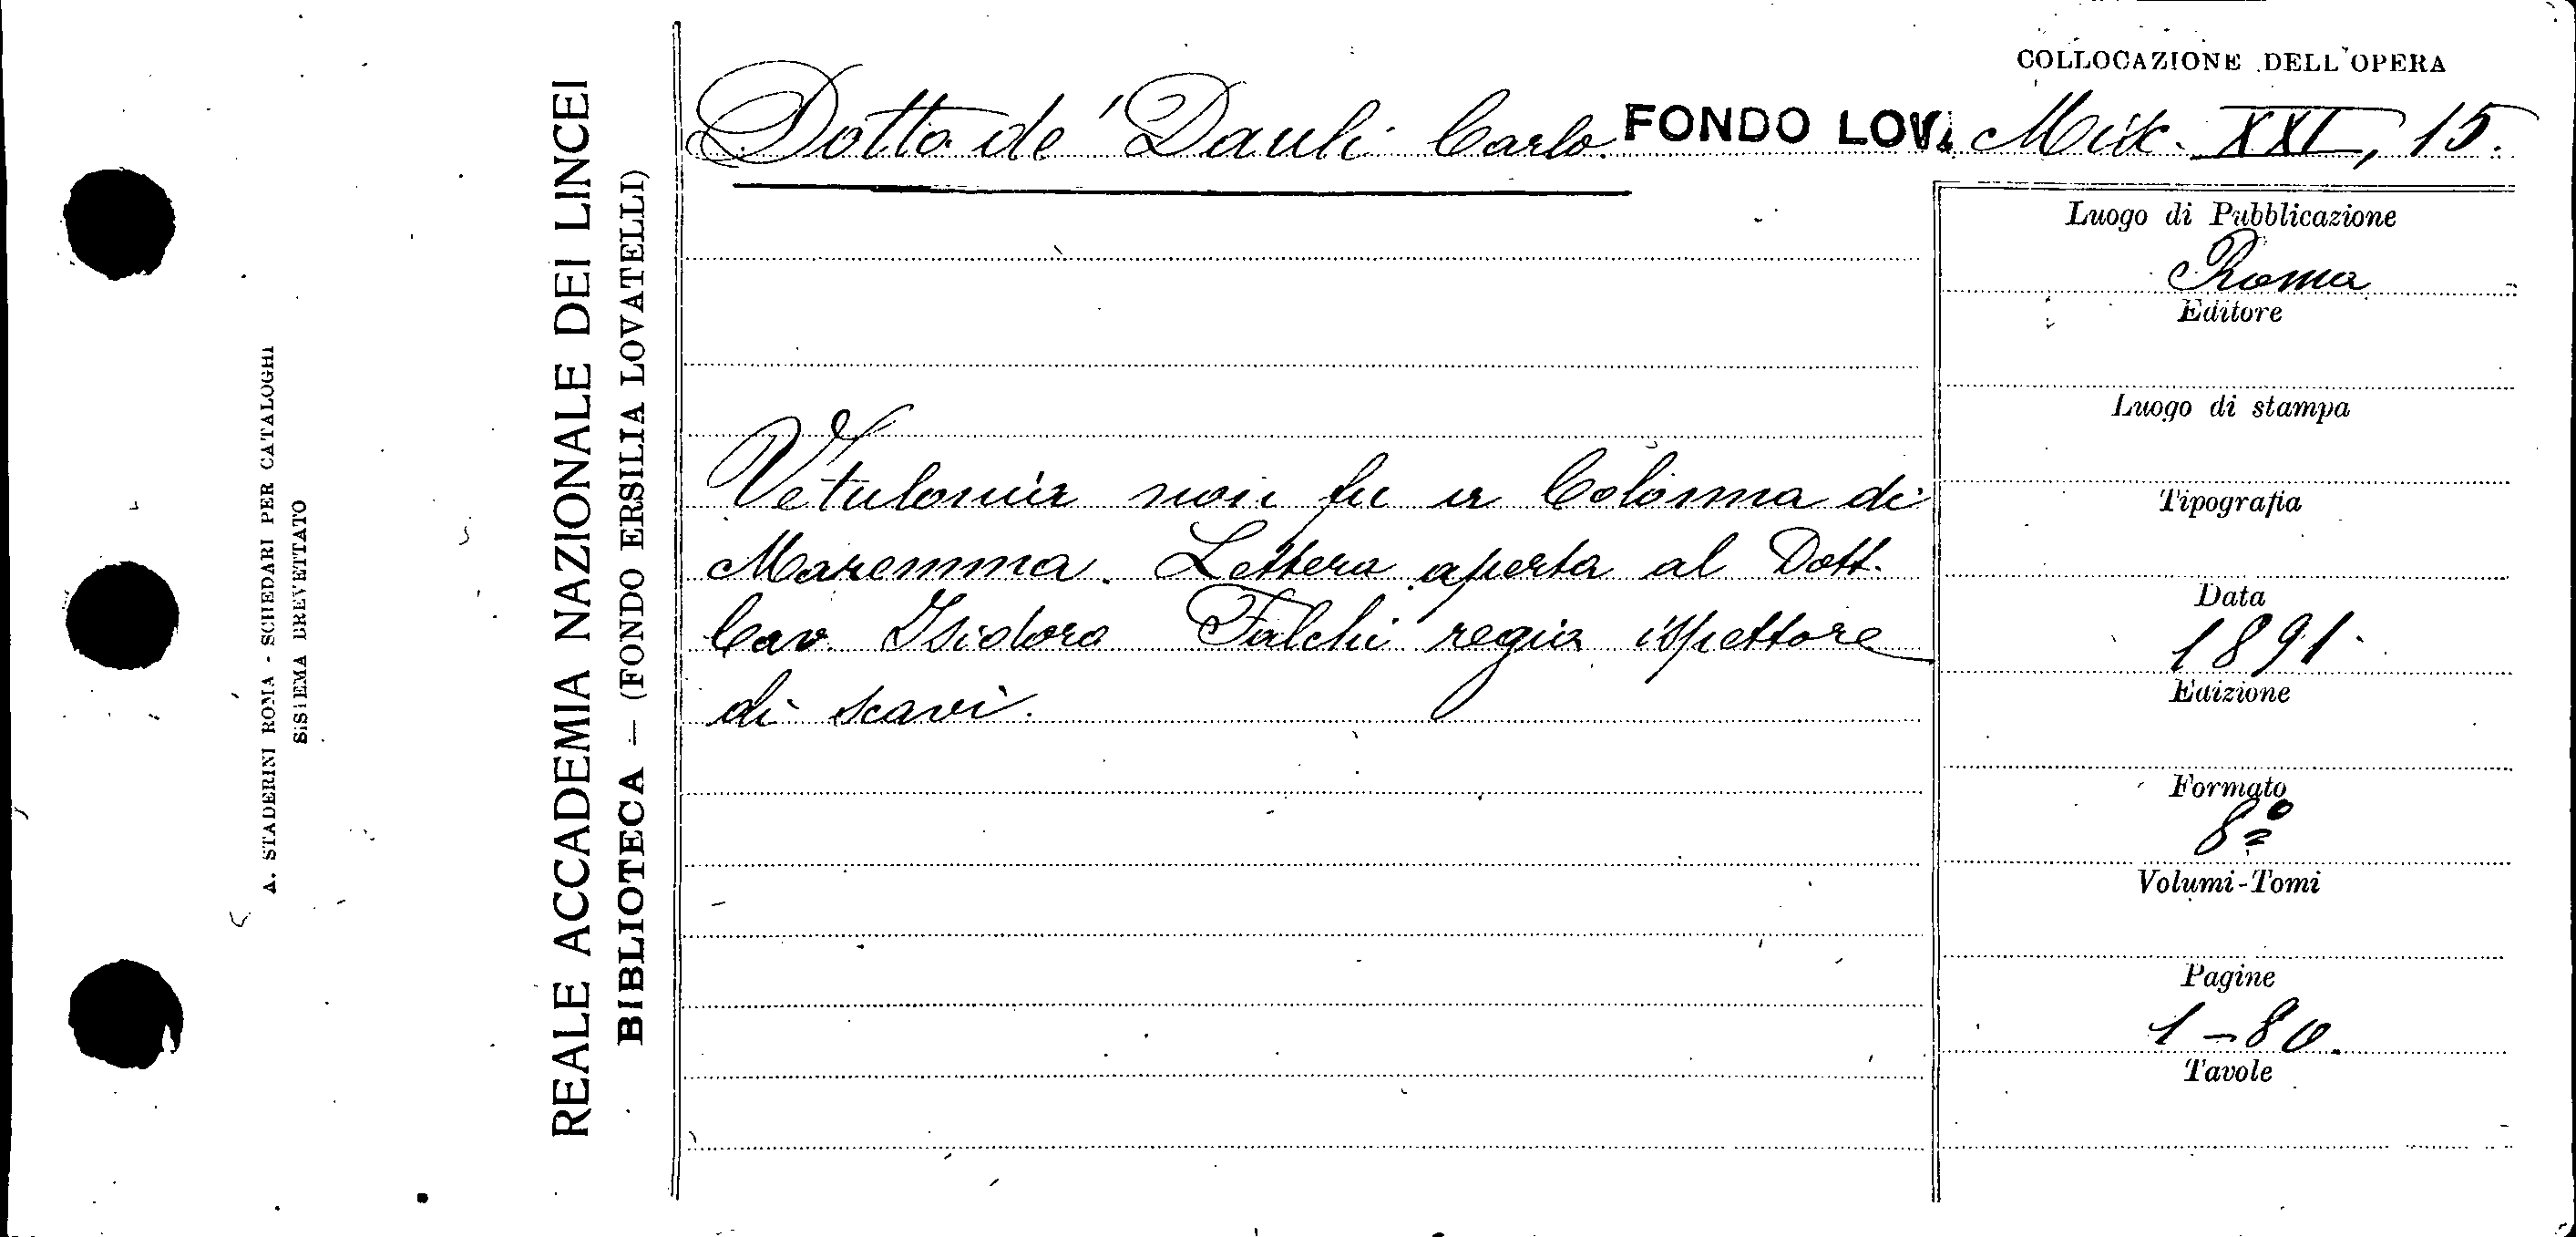 A. STADERINI ROMA - SCHEDARI PER CATALOGHI
SISTEMA BREVETTATO
REALE ACCADEMIA NAZIONALE DEI LINCEI
BIBLIOTECA — (FONDO ERSILIA LOVATELLI)
COLLOCAZIONE DELL'OPERA
Dotto de' Dauli Carlo. FONDO LOV. Misc. XXI, 15.
Vetulonia non fu a Colonna di
Maremma. Lettera aperta al Dott.
Cav. Isidoro Falchi regio ispettore
di scavi.
Luogo di Pubblicazione
Roma
Editore
Luogo di stampa
Tipografia
Data
1891
Edizione
Formato
8º
Volumi-Tomi
Pagine
1-80.
Tavole